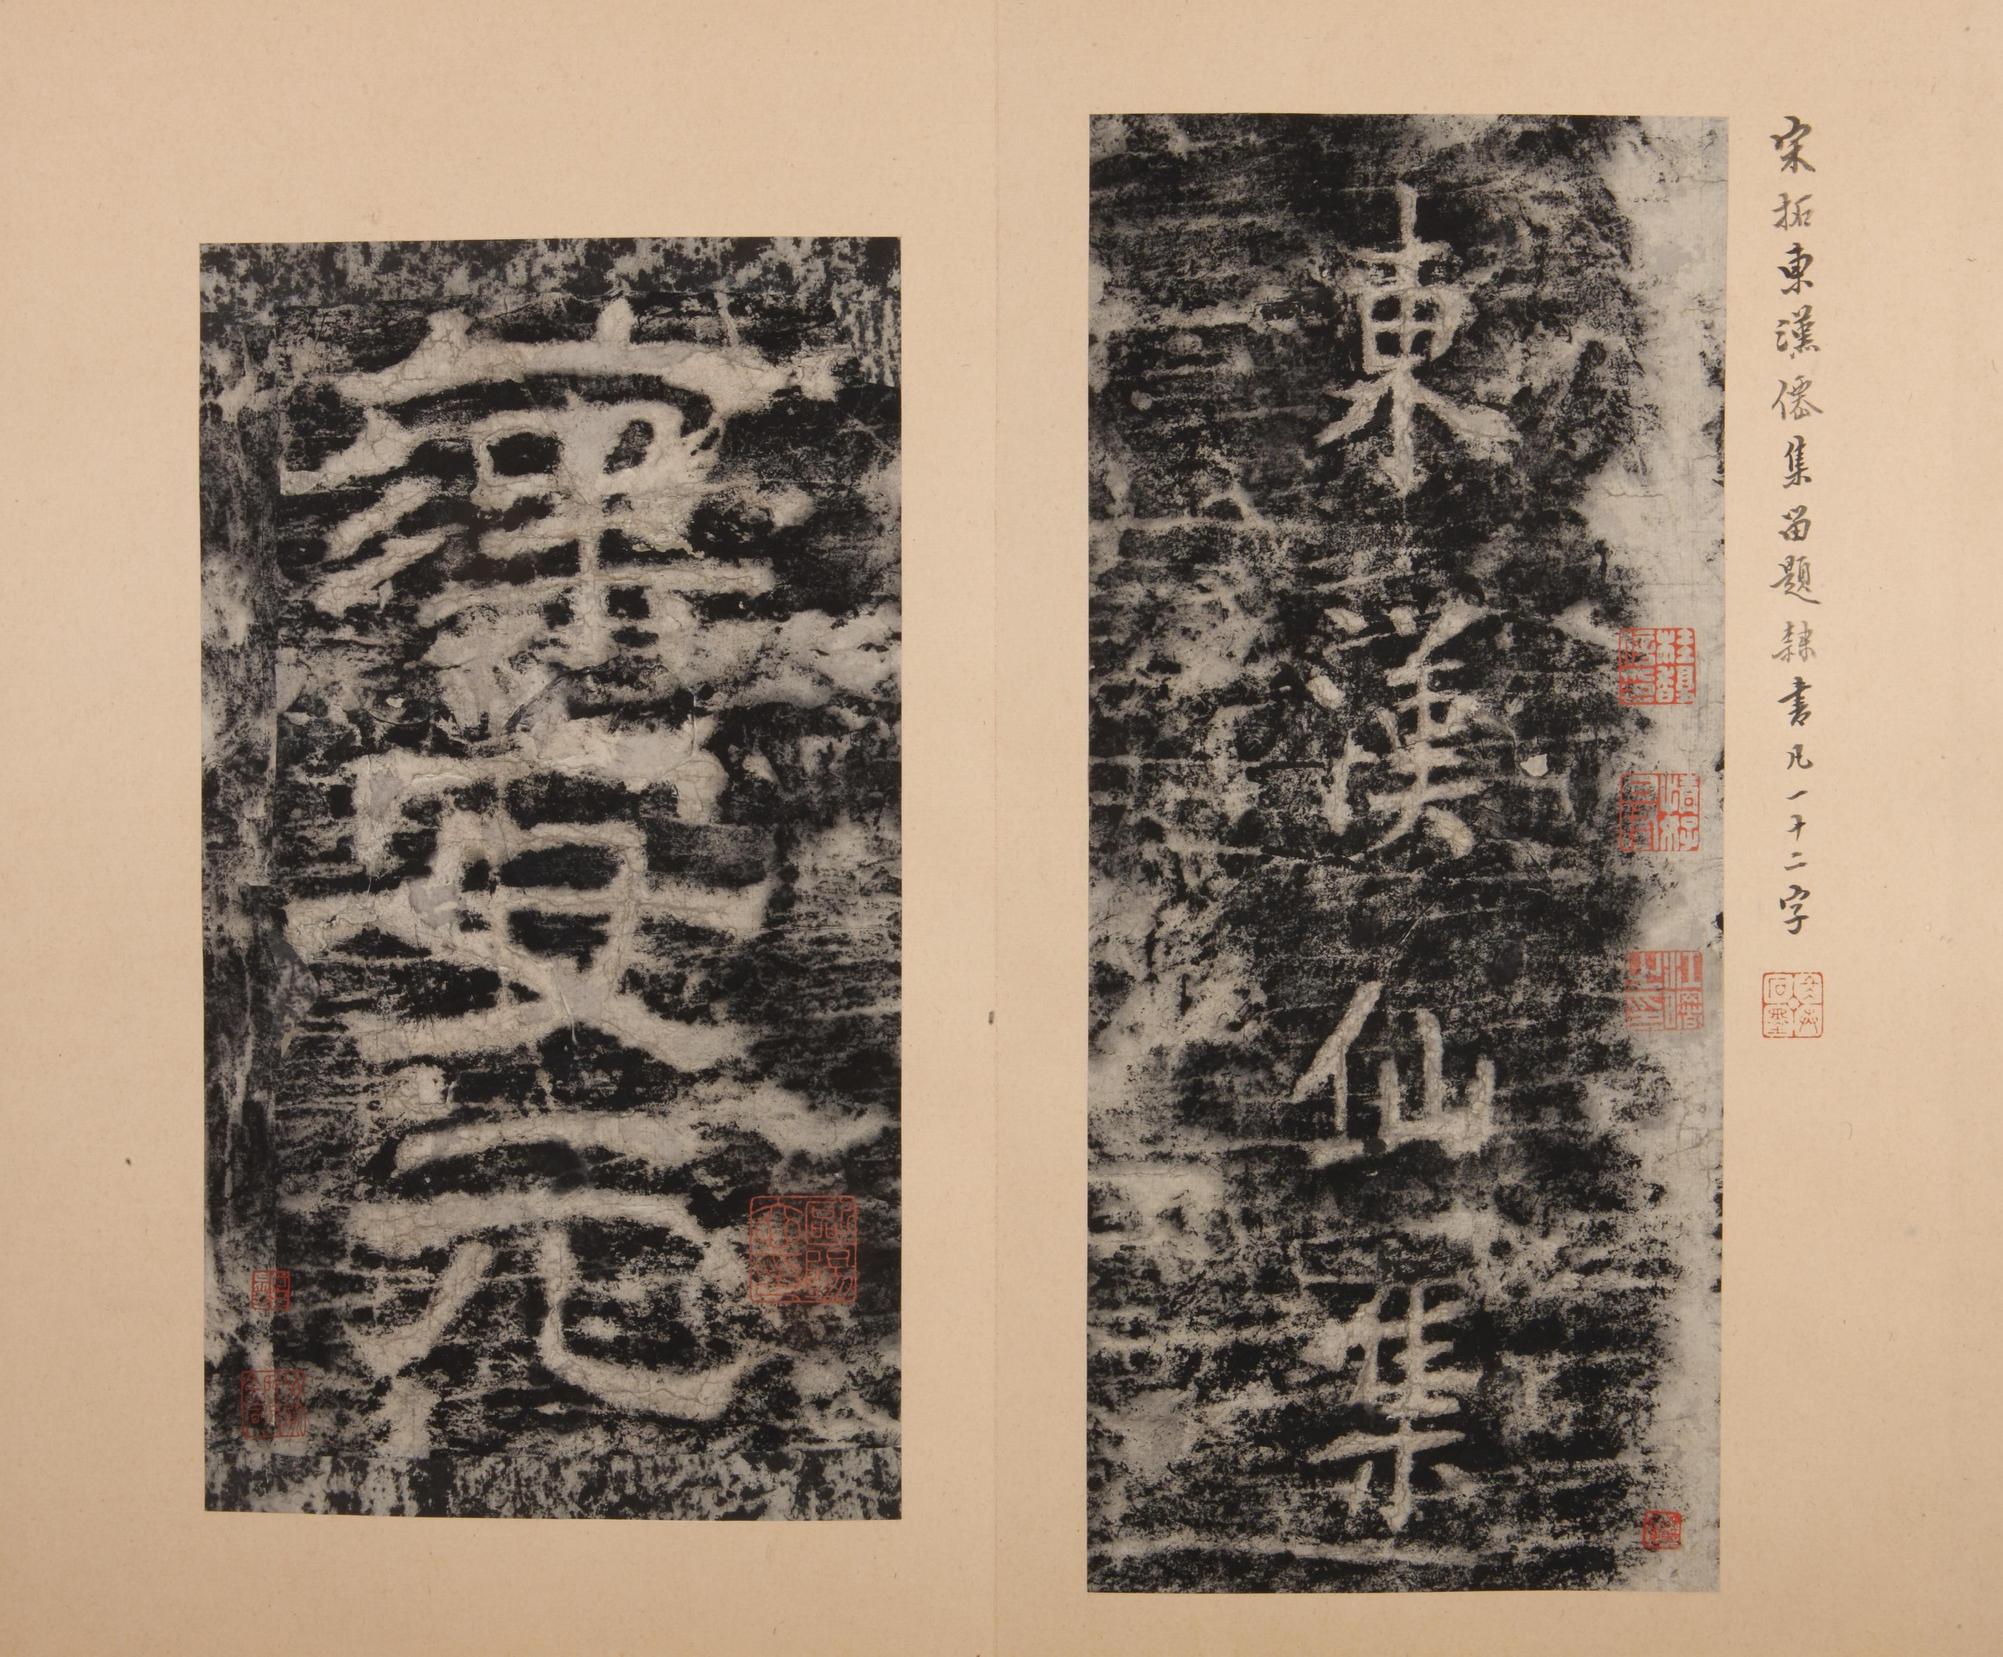 宋拓東漢僊集留題隸書凡一十二字
東漢仙集
漢安元